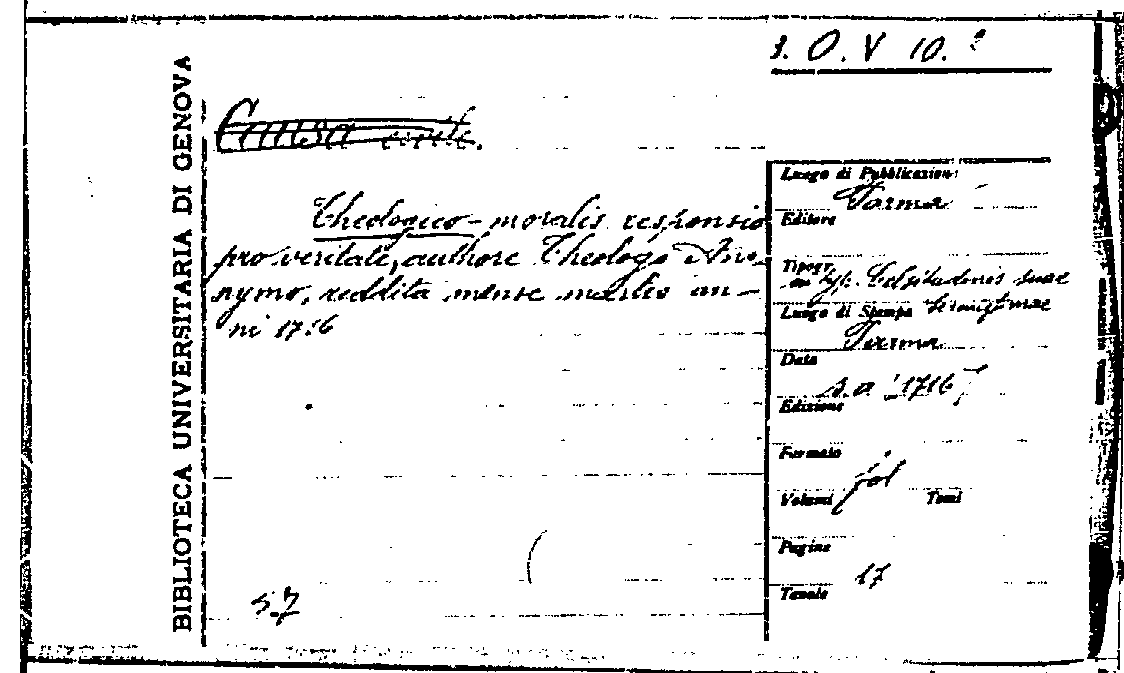 3. O. V 10.
BIBLIOTECA UNIVERSITARIA DI GENOVA
Causa civile.
Theologico-moralis responsio
pro veritate, authore Theologo Ano-
nymo, reddita mense martio an-
ni 1716
5.7
Luogo di Pubblicazione
Parma
Editore
Tipogr.
typ. Celsitudinis suae
Serenissimae
Luogo di Stampa
Parma
Data
s.a. [1716]
Edizione
Formato
fol
Volumi Tomi
Pagine
17
Tavole